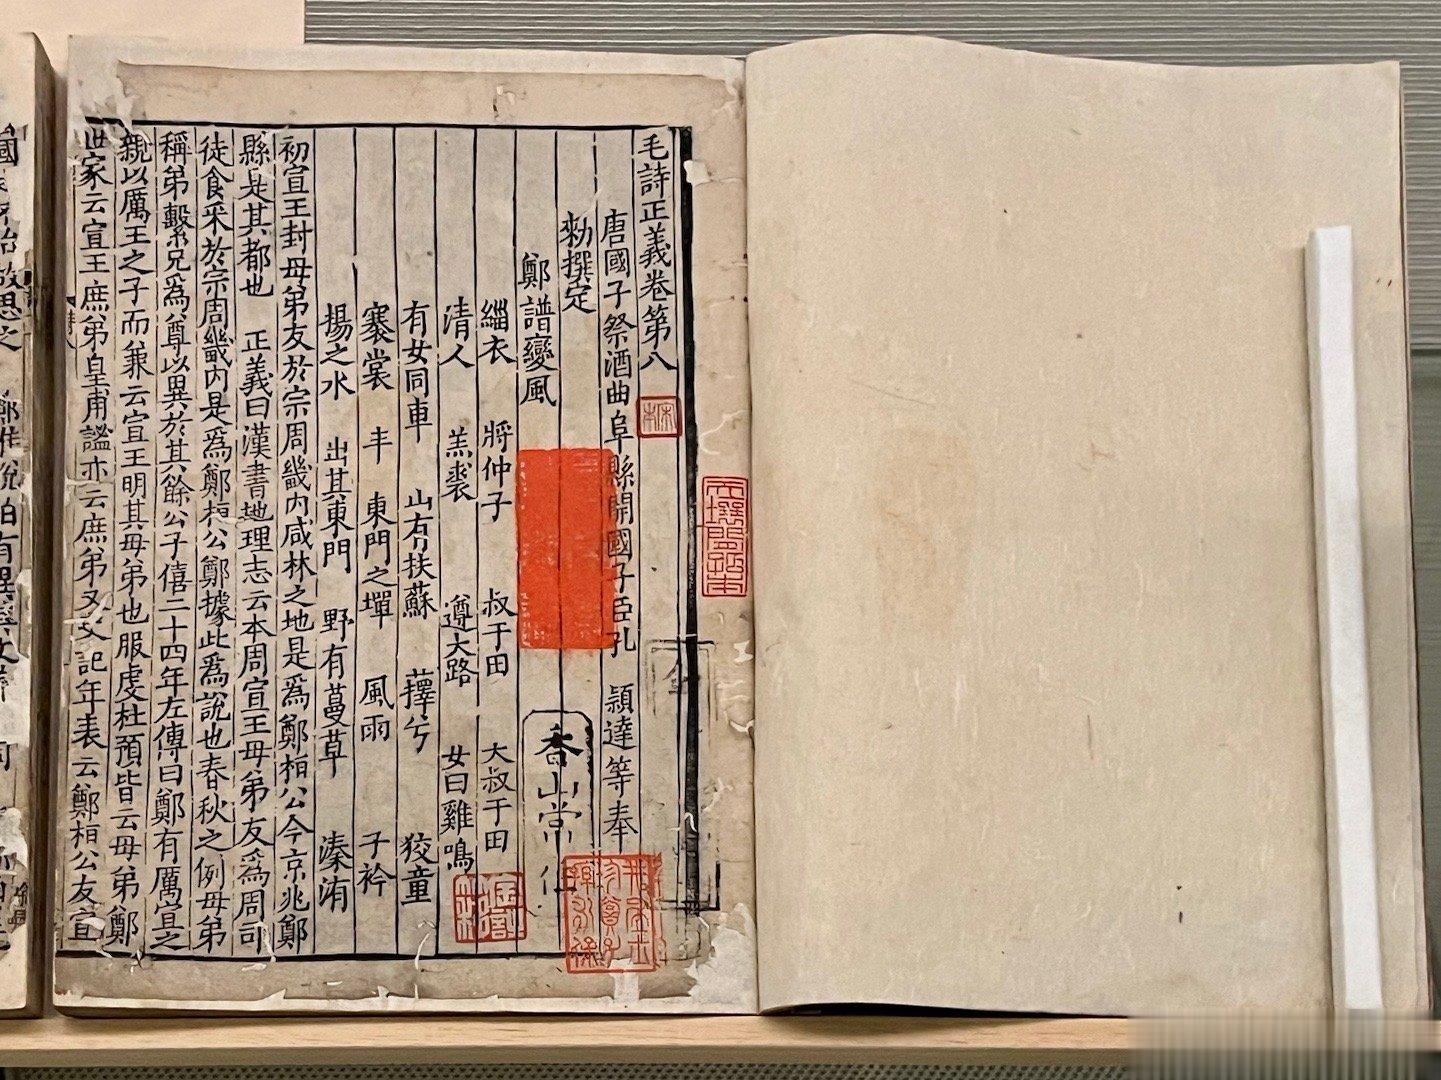 毛詩正義卷第八
唐國子祭酒曲阜縣開國子臣孔 頴達等奉
勑撰定
鄭譜變風
緇衣 將仲子 叔于田 大叔于田
清人 羔裘 遵大路 女曰雞鳴
有女同車 山有扶蘇 蘀兮 狡童
褰裳 丰 東門之墠 風雨 子衿
揚之水 出其東門 野有蔓草 溱洧
初宣王封母弟友於宗周畿内咸林之地是爲鄭桓公今京兆鄭
縣是其都也 正義曰漢書地理志云本周宣王母弟友爲周司
徒食采於宗周畿内是爲鄭桓公鄭據此爲說也春秋之例母弟
稱弟繫兄爲尊以異於其餘公子僖二十四年左傳曰鄭有厲宣之
親以厲王之子而兼云宣王明其母弟也服虔杜預皆云母弟鄭
世家云宣王庶弟皇甫謐亦云庶弟又史記年表云鄭桓公友宣
宋本
香山常住